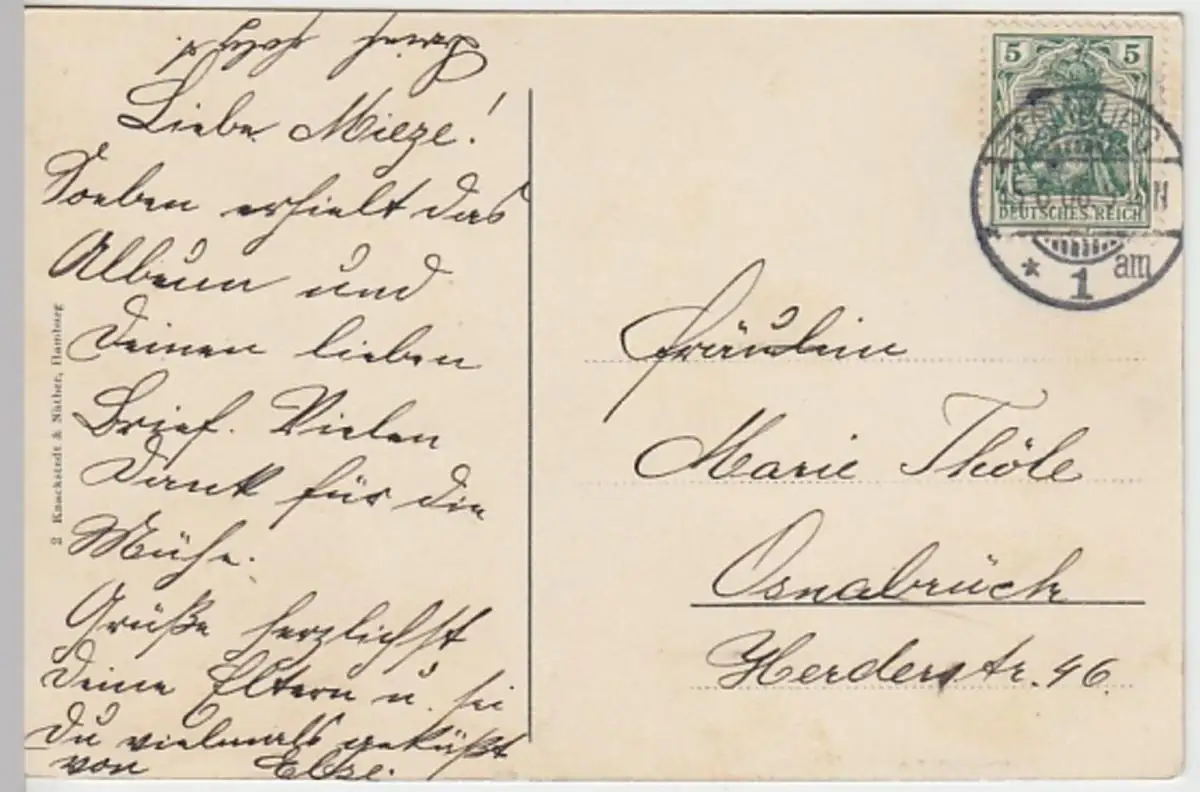 Brief folgt.
Liebe Mieze!
Soeben erhielt das
Album und
Deinen lieben
Brief. Vielen
Dank für die
Mühe.
Grüße herzlichst
Deine Eltern u. sei
Du vielmals geküßt
von Else.
2 Knackstedt & Näther, Hamburg
5 5
DEUTSCHES REICH
1 am
Fräulein
Marie Thöle
Osnabrück
Herderstr. 46.